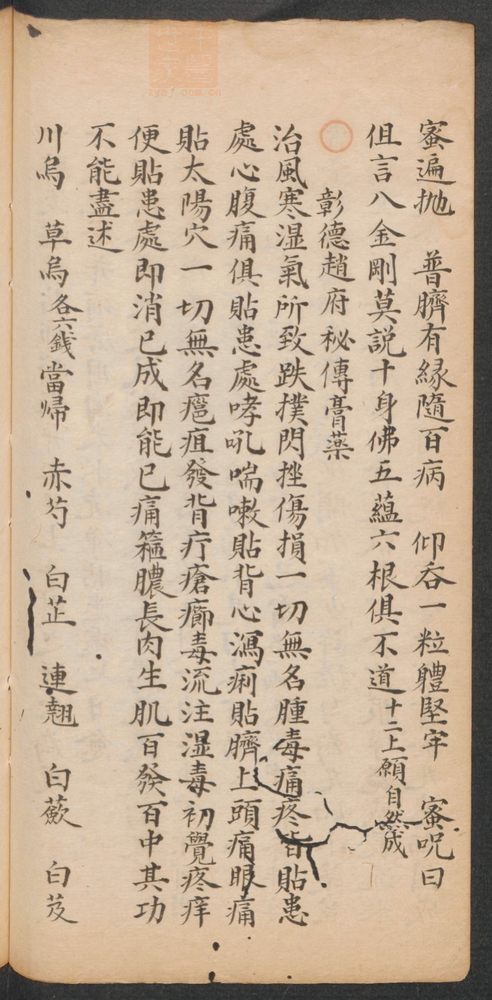 蜜遍抛　普臍有緣隨百病　仰吞一粒軆堅牢　蜜呪曰
伹言八金剛莫説十身佛五藴六根俱不道十二上願自然成
彰德趙府秘傳膏藥
治風寒濕氣所致跌撲閃挫傷損一切無名腫毒痛疼皆貼患
處心腹痛俱貼患處哮吼喘嗽貼背心瀉痢貼臍上頭痛眼痛
貼太陽穴一切無名癰疽發背疔瘡癤毒流注濕毒初覺疼痒
便貼患處即消已成即能已痛箍膿長肉生肌百發百中其功
不能盡述
川烏　草烏各六錢當歸　赤芍　白芷　連翹　白蔹　白芨